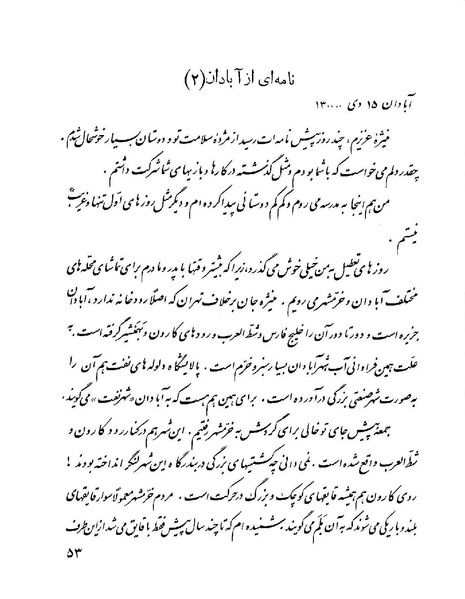 نامه‌ای از آبادان (۲)
آبادان ۱۵ دی ۱۳۰۰۰۰
منیژهٔ عزیزم، چند روز پیش نامه‌ات رسید از مژدهٔ سلامت تو و دوستان بسیار خوشحال شدم.
چقدر دلم می‌خواست که باشما بودم و مثل گذشته در کارها و بازیهای شما شرکت داشتم.
من هم اینجا به مدرسه می‌روم و کم‌کم دوستانی پیدا کرده‌ام و دیگر مثل روزهای اوّل تنها و غریب
نیستم.
روزهای تعطیل به من خیلی خوش می‌گذرد، زیرا که بیشتر وقتها با پدر و مادرم برای تماشای محلّه‌های
مختلف آبادان و خرّمشهر می‌رویم. منیژه جان برخلاف تهران که اصلاً رودخانه ندارد، آبادان
جزیره است و دور تا دور آن را خلیج فارس و شطّ‌العرب و رودهای کارون و بهمنشیر گرفته است. به
علّت همین فراوانی آب شهر آبادان بسیار سبز و خرّم است. پالایشگاه و لوله‌های نفت هم آن را
به صورت شهر صنعتی بزرگی درآورده است. برای همین هم هست که به آبادان «شهر نفت» می‌گویند.
جمعهٔ پیش جای تو خالی برای گردش به خرّمشهر رفتیم. این شهر هم در کنار رود کارون و
شطّ‌العرب واقع شده است. نمی‌دانی چه کشتیهای بزرگی در بندرگاه این شهر لنگر انداخته بودند!
روی کارون هم همیشه قایقهای کوچک و بزرگ در حرکت است. مردم خرّمشهر معمولا سوار قایقهای
بلند و باریکی می‌شوند که به آن بَلَم می‌گویند. شنیده‌ام که تا چند سال پیش فقط با قایق می‌شد از این طرف
۵۳